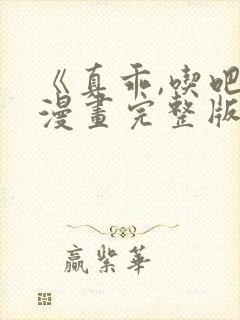 《真乖,喫吧
漫畫完整版
贏紫華